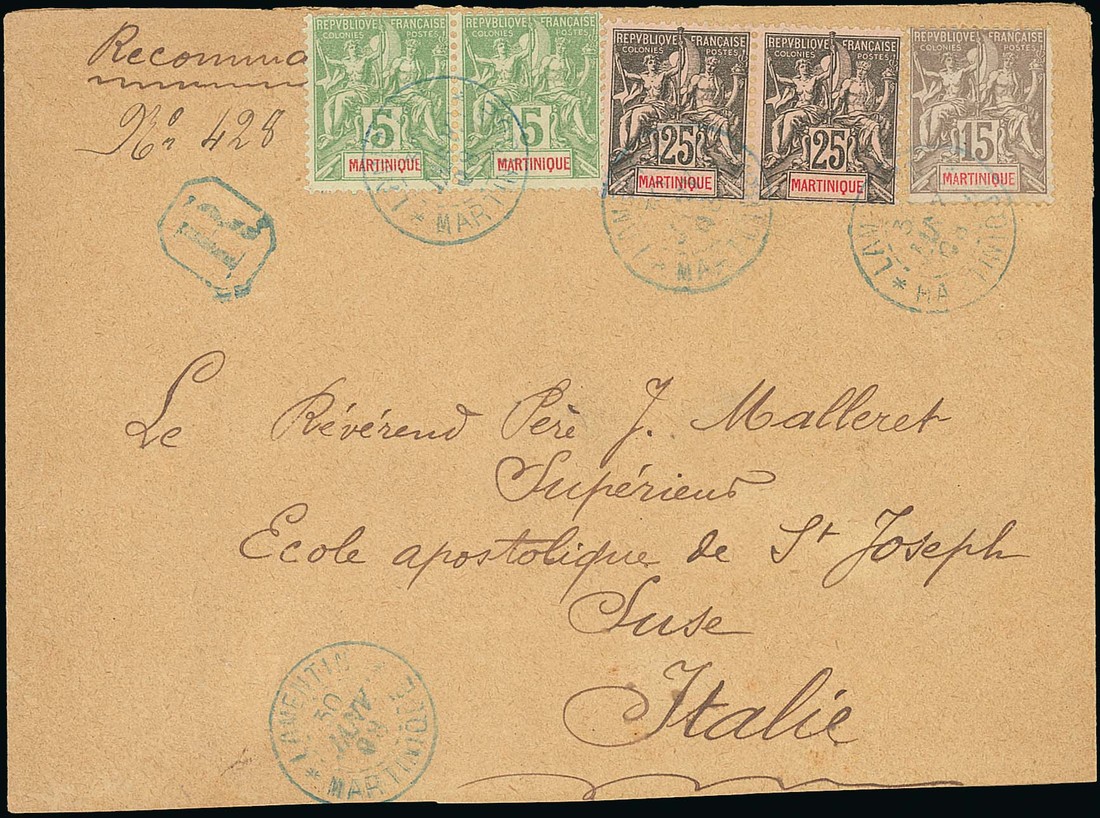 Recomma
No 428
REPVBLIQUE FRANÇAISE
COLONIES POSTES
5
MARTINIQUE
REPVBLIQUE FRANÇAISE
COLONIES POSTES
5
MARTINIQUE
REPVBLIQUE FRANÇAISE
COLONIES POSTES
25
MARTINIQUE
REPVBLIQUE FRANÇAISE
COLONIES POSTES
25
MARTINIQUE
REPVBLIQUE FRANÇAISE
COLONIES POSTES
15
MARTINIQUE
Le Révérend Père J. Malleret
Supérieur
Ecole apostolique de St Joseph
Suse
Italie
LAMENTIN
MARTINIQUE